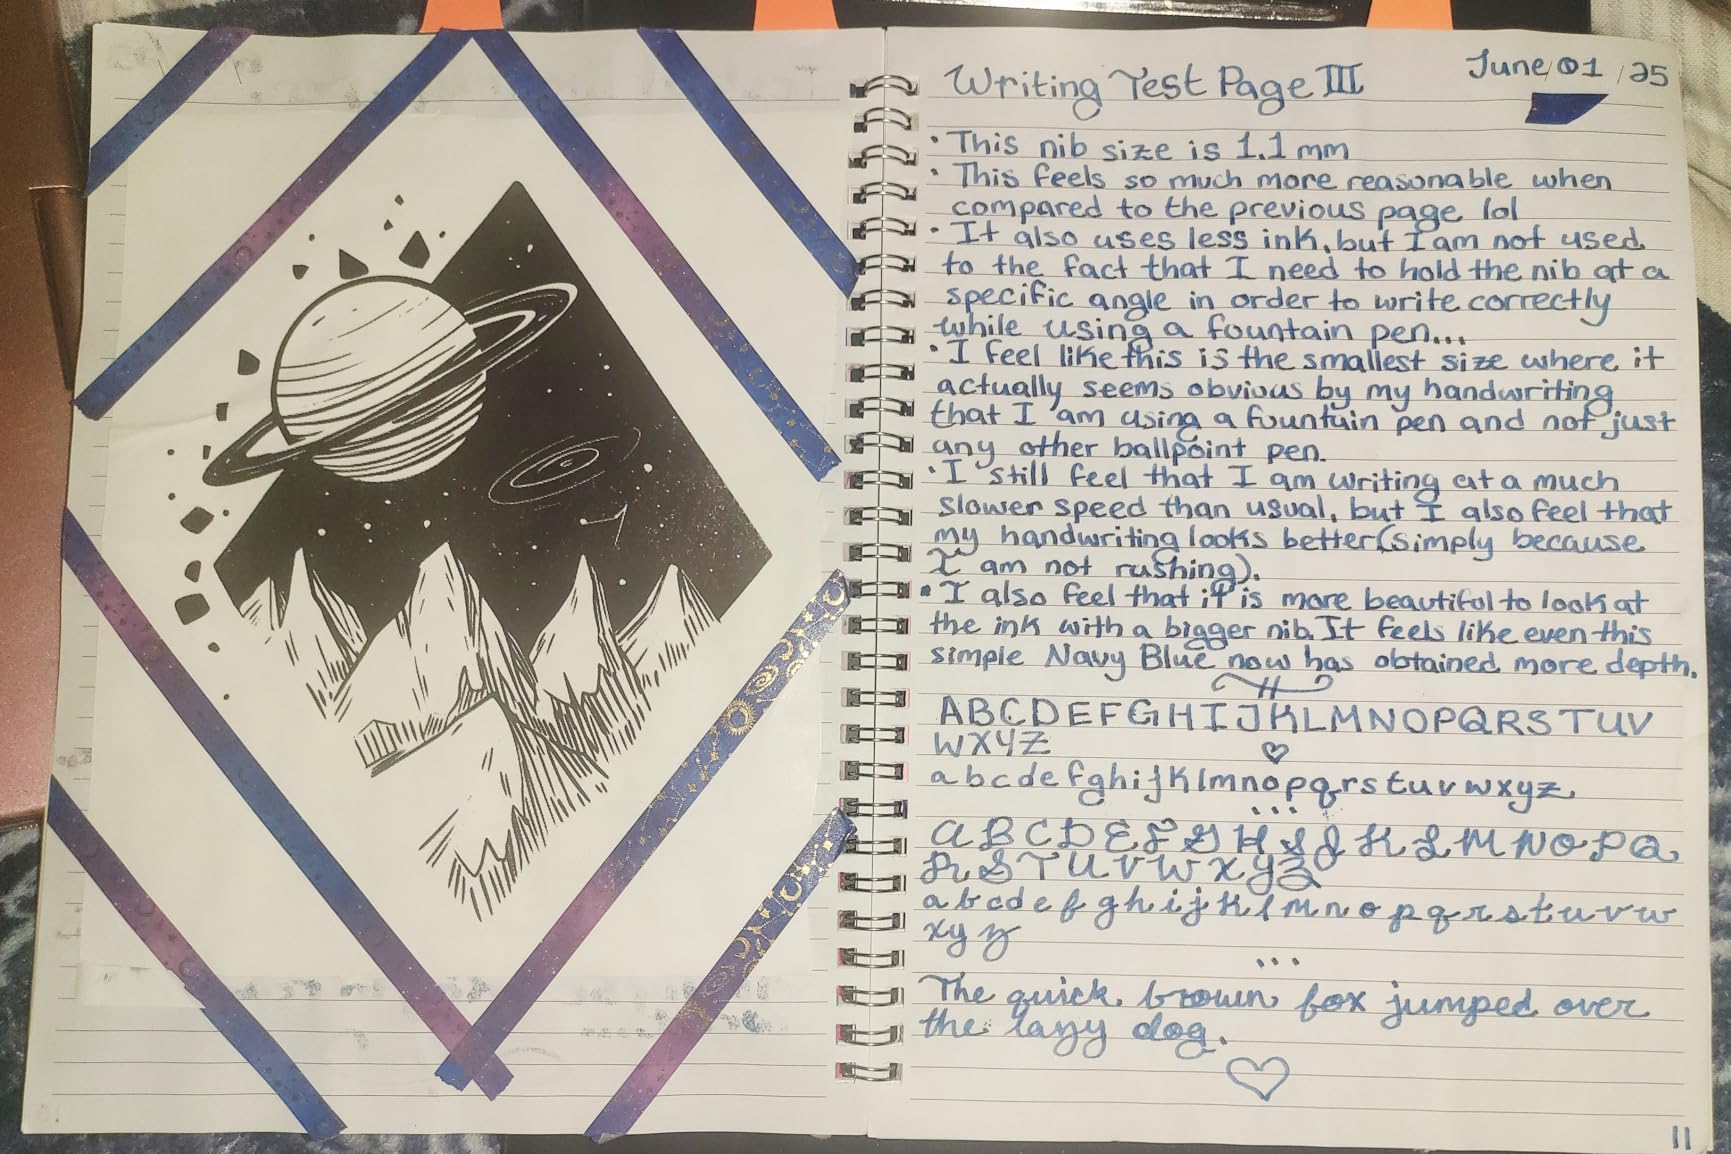 Writing Test Page III
June/01/25
• This nib size is 1.1 mm
• This feels so much more reasonable when
compared to the previous page lol
• It also uses less ink, but I am not used
to the fact that I need to hold the nib at a
specific angle in order to write correctly
while using a fountain pen...
• I feel like this is the smallest size where it
actually seems obvious by my handwriting
that I am using a fountain pen and not just
any other ballpoint pen.
• I still feel that I am writing at a much
slower speed than usual, but I also feel that
my handwriting looks better (simply because
I am not rushing).
• I also feel that it is more beautiful to look at
the ink with a bigger nib. It feels like even this
simple Navy Blue now has obtained more depth.
ABCDEFGHIJKLMNOPQRSTUV
WXYZ
abcdefghijklmnopqrstuvwxyz
...
ABCDEFGHIJKLMNOPQ
RSTUVWXYZ
abcdefghijklmnopqrstuvw
xyz
...
The quick brown fox jumped over
the lazy dog.
11